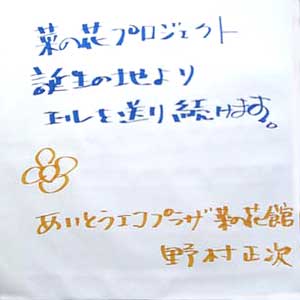 菜の花プロジェクト
誕生の地より
エールを送り続けます。
あいとうエコプラザ菜の花館
野村正次